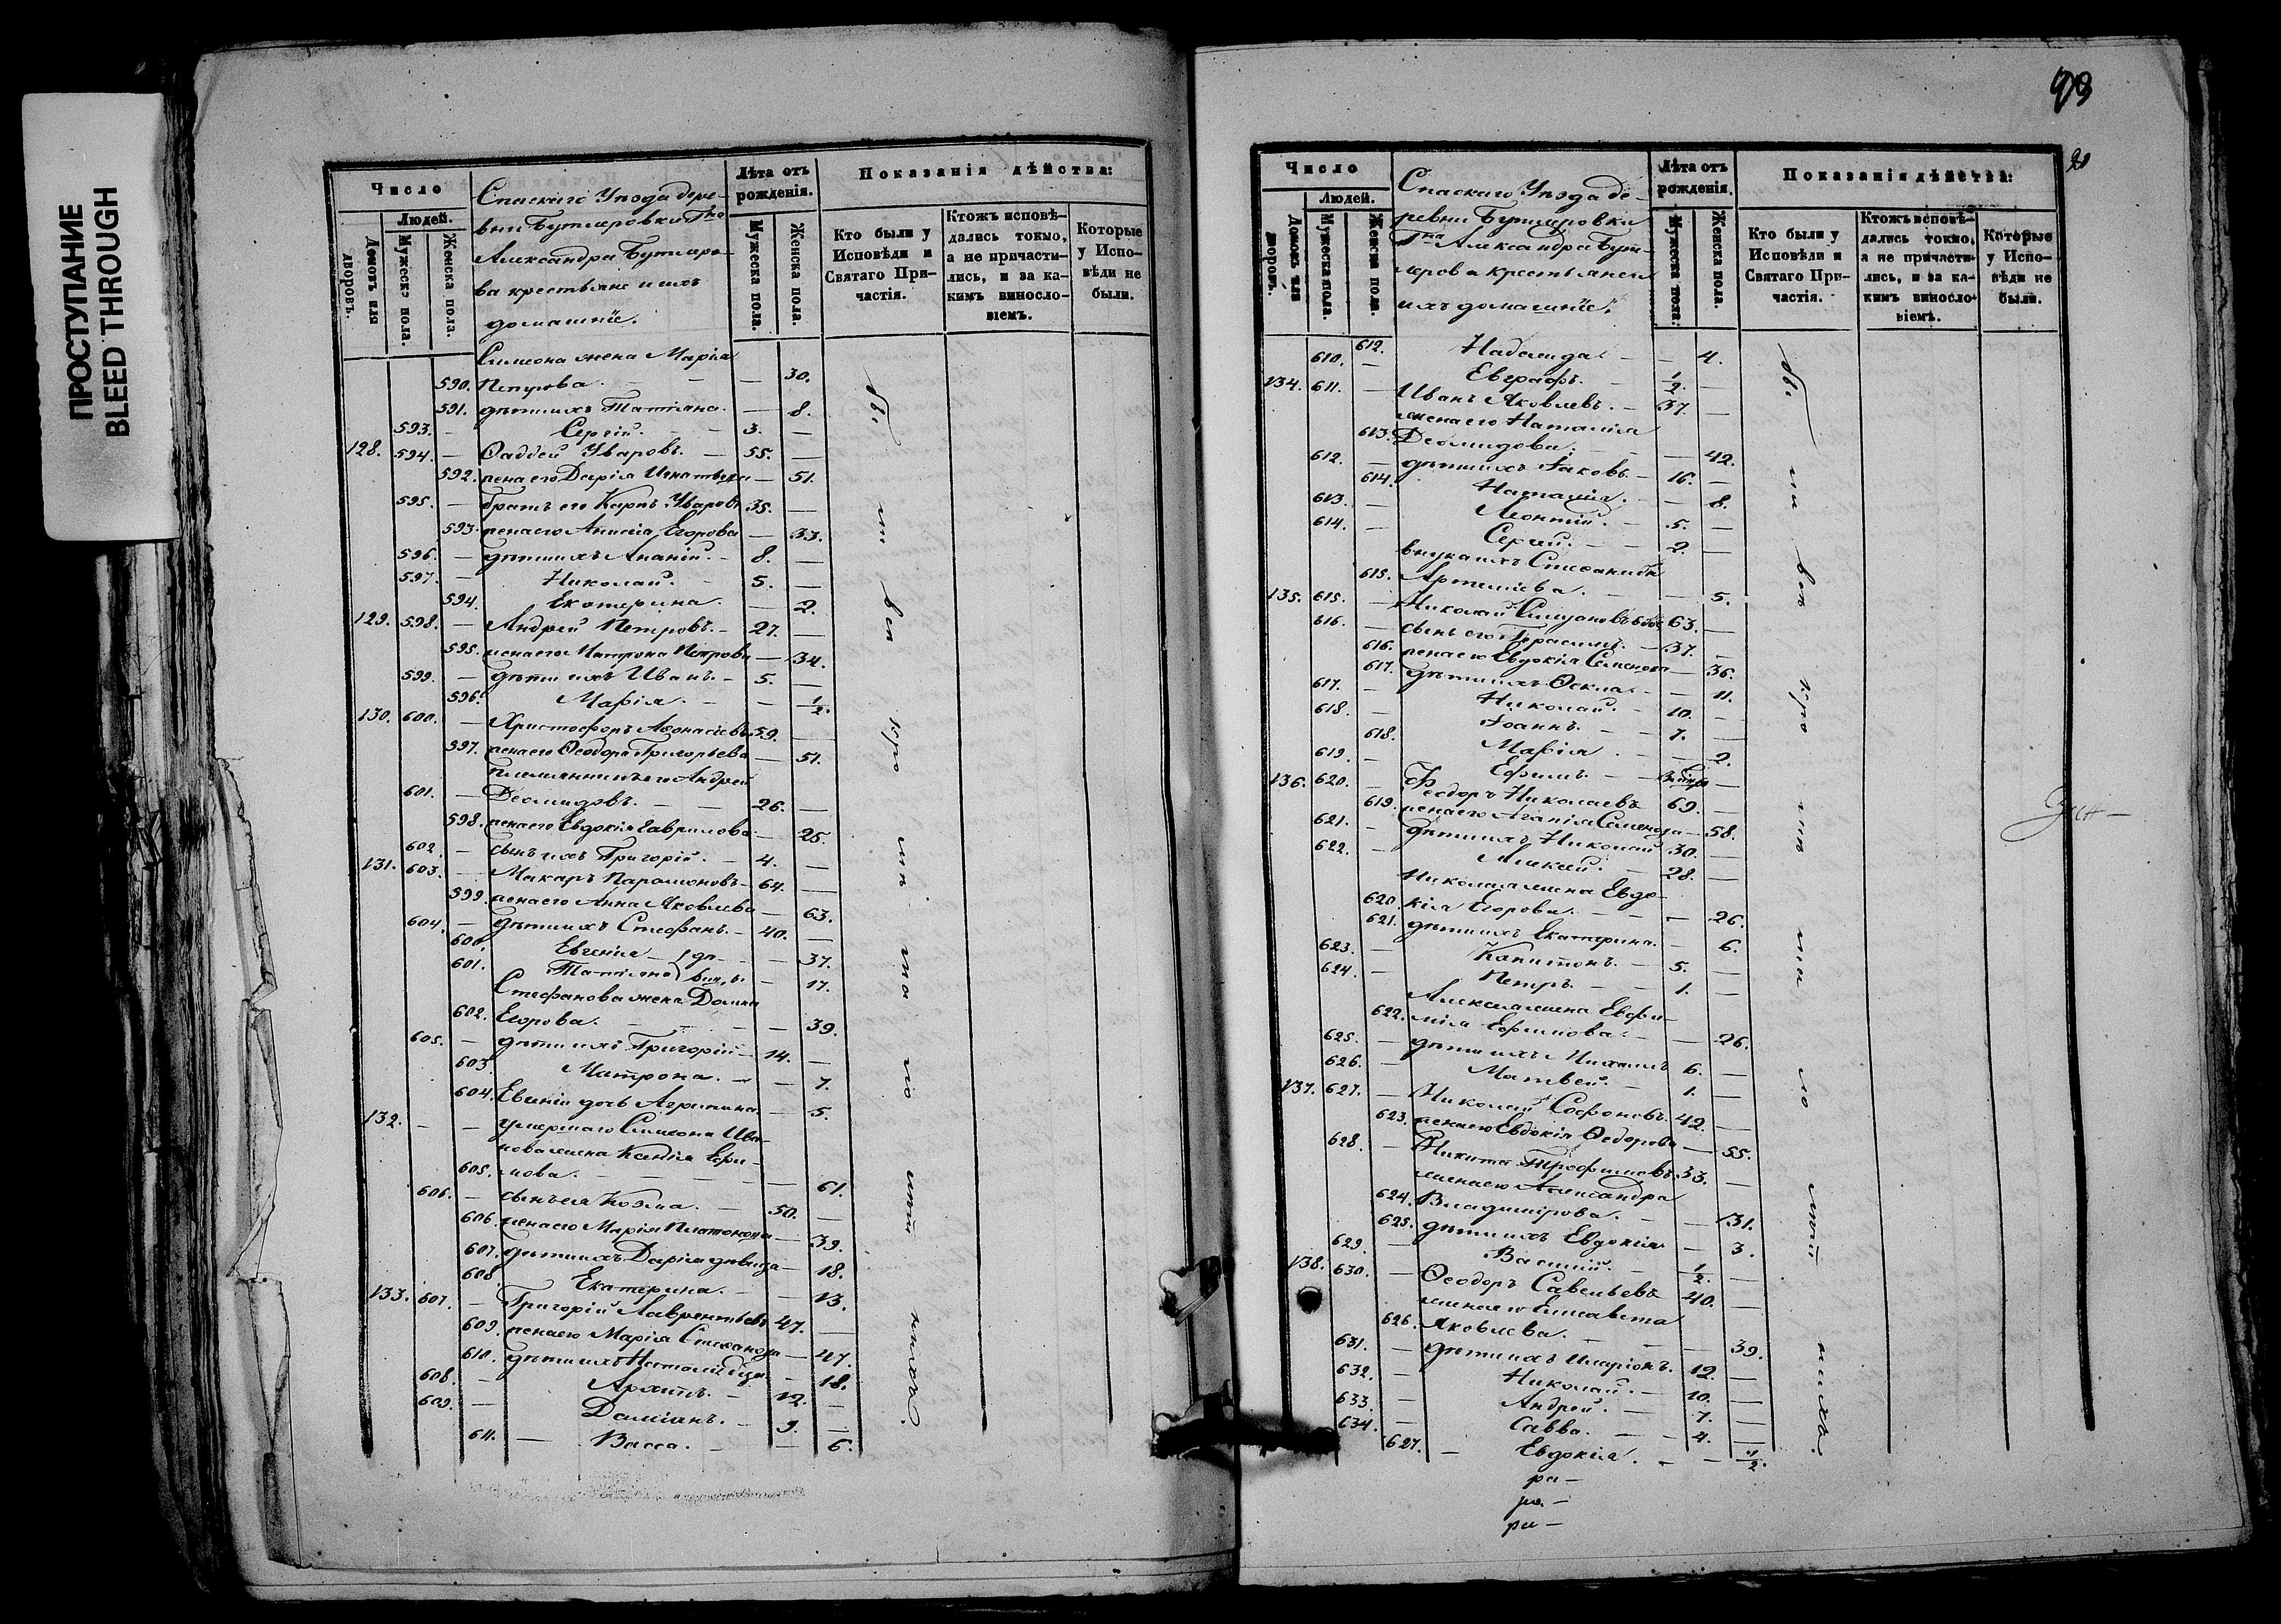 ПРОСТУПАНИЕ
BLEED THROUGH
Число
Людей.
Домовъ или дворовъ.
Мужеска пола.
Женска пола.
Спаскаго Уѣзда дере-
вни Бутлеровки Гна
Александра Бутлеро-
ва крестьяне и ихъ
домашніе.
Лѣта отъ рожденія.
Мужеска пола.
Женска пола.
Показанія дѣйства:
Кто были у Исповѣди и Святаго При-частія.
Ктожъ исповѣ-дались токмо, а не причасти-лись, и за ка-кимъ винослo-віемъ.
Которые у Испо-вѣди не были.
Симеона жена Марія
590. Петрова. — — — 30.
591. дѣти ихъ Татіана. — 8.
593. — Сергій. — 3. —
128. 594. — Ѳаддей Уваровъ. — 55. —
592. жена его Дарія Игнатьева — 51.
595. — братъ его Карпъ Уваровъ 35. —
593. жена его Анисія Егорова — 33.
596. — дѣти ихъ Ананій. — 8. —
597. — Николай. — 5. —
594. Екатерина. — 2.
129. 598. — Андрей Петровъ. — 27. —
595. жена его Матрона Петрова — 34.
599. — дѣти ихъ Иванъ. — 5. —
596. Марія. — — 1/2.
130. 600. — Христофоръ Аѳонасіевъ 59. —
597. жена его Ѳеодора Григорьева — 51.
племянникъ его Андрей
601. — Деомидовъ. — — 26. —
598. жена его Евдокія Гаврилова — 25.
602. — сынъ ихъ Григорій. — 4. —
131. 603. — Макаръ Парамоновъ — 64. —
599. жена его Анна Яковлева — 63.
604. — дѣти ихъ Стефанъ. — 40. —
600. Евгенія — — 37.
601. Татіана — 17.
Стефанова жена Домна
602. Егорова. — — — 39.
605. — дѣти ихъ Григорій — 14. —
603. Матрона. — — 7.
604. Евгеніи дочь Агрипина — 5.
132. — — умершаго Симеона Ива-
нова жена Ксенія Ефи-
605. мова. — — — — 61.
606. — сынъ ея Козма. — 50. —
606. жена его Марія Платонова — 39.
607. дѣти ихъ Дарія дѣвица — 18.
608. Екатерина. — — 13.
133. 607. — Григорій Лаврентьевъ 47. —
609. жена его Марія Степанова — 47.
610. дѣти ихъ Наталія — 18.
608. — Архипъ. — 12. —
609. — Даміанъ. — 9. —
611. — Васса. — — 6.
Всѣ
93
20
Число
Людей.
Домовъ или дворовъ.
Мужеска пола.
Женска пола.
Спаскаго Уѣзда де-
ревни Бутлеровки
Гна Александра Бут-
лерова крестьяне и
ихъ домашніе.
Лѣта отъ рожденія.
Мужеска пола.
Женска пола.
Показанія дѣйства:
Кто были у Исповѣди и Святаго При-частія.
Ктожъ исповѣ-дались токмо, а не причасти-лись, и за ка-кимъ винослo-віемъ.
Которые у Испо-вѣди не были.
612. Надежда. — — 4.
610. — Евграфъ. — 1/2. —
134. 611. — Иванъ Яковлевъ. — 37. —
жена его Наталія
613. Деомидова. — — 42.
612. — дѣти ихъ Іаковъ. — 16. —
614. Наталія. — — 8.
613. — Леонтій. — 5. —
614. — Сергей. — — 2. —
внука ихъ Степанида
615. Артеміева. — — 5.
135. 615. — Николай 63. —
616. — сынъ его Герасимъ. — 37. —
616. жена его Евдокія Семенова — 36.
617. дѣти ихъ Ѳекла. — — 11.
617. — Николай. — 10. —
618. — Іоаннъ. — — 7. —
618. Марія. — — 2.
619. — Ефимъ. — —
136. 620. — Ѳеодоръ Николаевъ 69. —
619. жена его Агапія Семенова — 58.
621. — дѣти ихъ Николай 30. —
622. — Алексей. — 28. —
Николая жена Евдо-
620. кія Егорова. — — — 26.
621. дѣти ихъ Екатерина. — 6.
623. — Капитонъ. — 5. —
624. — Петръ. — — 1. —
Алексея жена Евфи-
622. мія Ефимова. — — 26.
625. — дѣти ихъ Михаилъ 6. —
626. — Матвей. — 1. —
137. 627. — Николай Софоновъ 42. —
623. жена его Евдокія Ѳедорова — 55.
628. — Никита Трофимовъ 33. —
жена его Александра
624. Владимірова. — — 31.
625. дѣти ихъ Евдокія — 3.
629. — Василій. — 1/2. —
138. 630. — Ѳеодоръ Савельевъ 40. —
жена его Елисавета
626. Яковлева. — — 39.
631. — дѣти ихъ Иларіонъ. 12. —
632. — Николай. — 10. —
633. — Андрей. — 7. —
634. — Савва. — — 4. —
627. — Евдокія. — — 1/2.
Всѣ